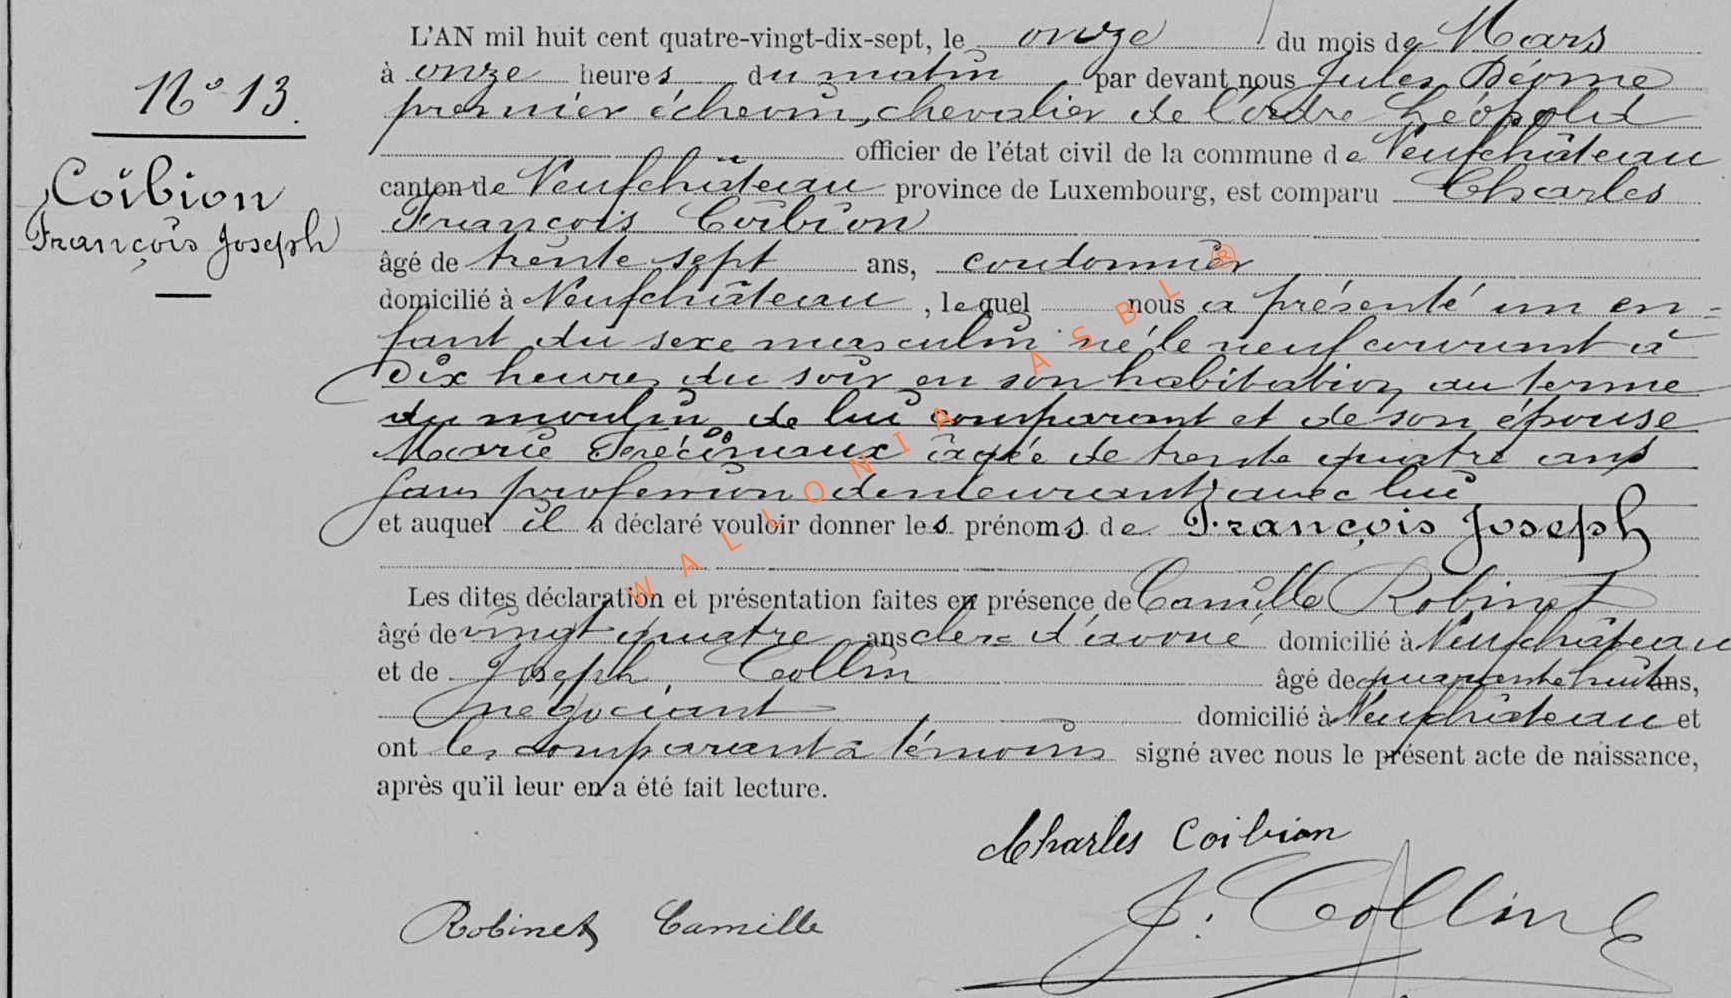 L'AN mil huit cent quatre-vingt-dix-sept, le onze du mois de Mars
N° 13.
à onze heures du matin par devant nous Jules
premier échevin, chevalier de l'ordre Léopold
officier de l'état civil de la commune de Neufchâteau
Coibion
François Joseph
canton de Neufchâteau province de Luxembourg, est comparu Charles
François Coibion
âgé de trente sept ans, cordonnier
domicilié à Neufchâteau, lequel nous a présenté un en=
fant du sexe masculin né le neuf courant à
dix heures du soir en son habitation au terme
du moulin de lui comparant et de son épouse
Marie âgée de trente quatre ans
sans profession demeurant avec lui
et auquel il a déclaré vouloir donner les prénoms de François Joseph
Les dites déclaration et présentation faites en présence de Camille Robinet
âgé de vingt quatre ans clerc d'avoué domicilié à Neufchâteau
et de Joseph Collin âgé de quarante huit ans,
négociant domicilié à Neufchâteau et
ont les comparant & témoins signé avec nous le présent acte de naissance,
après qu'il leur en a été fait lecture.
Charles Coibion
Robinet Camille
J. Collin
WALLONIA ASBL ®